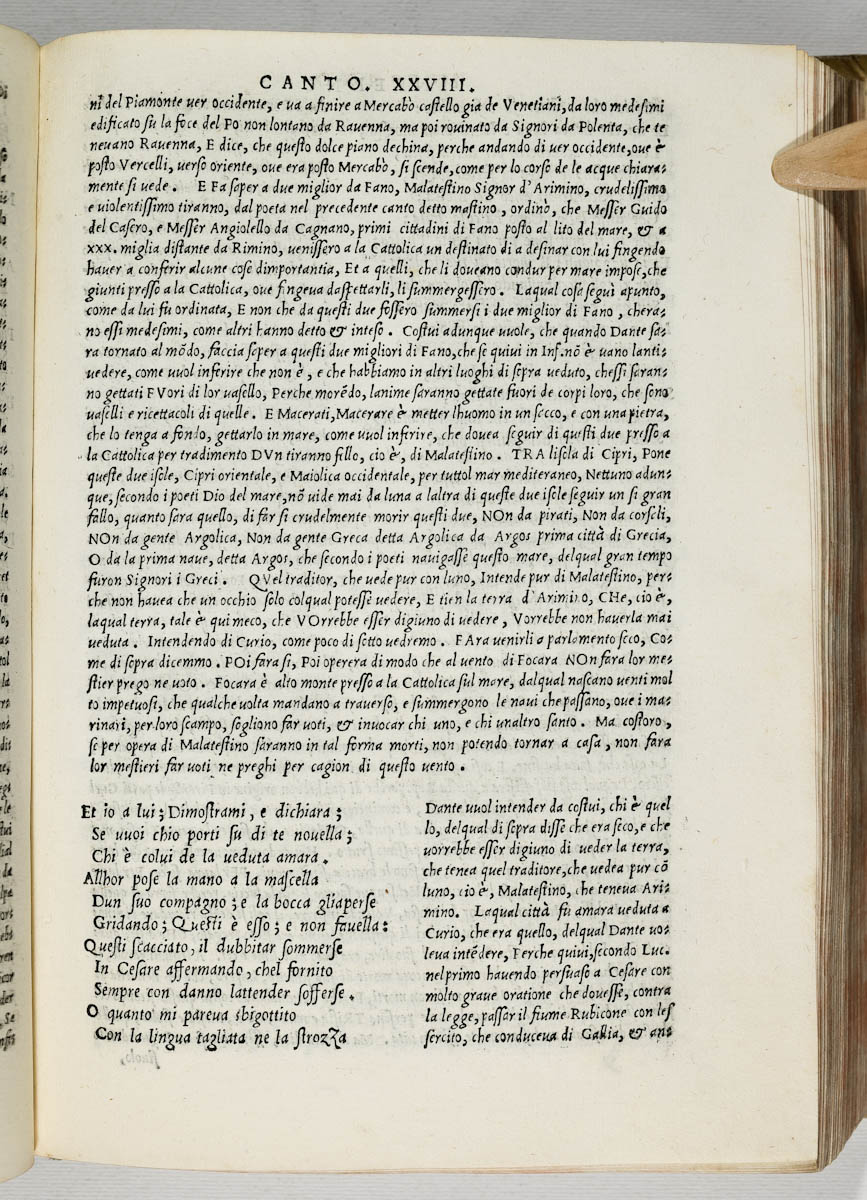 CANTO. XXVIII.
ni del Piamonte uer occidente, e ua a finire a Mercabò castello gia de Venetiani, da loro medesimi
edificato su la foce del Po non lontano da Rauenna, ma poi rouinato da Signori da Polenta, che te
neuano Rauenna, E dice, che questo dolce piano dechina, perche andando di uer occidente, oue è
posto Vercelli, uerso oriente, oue era posto Mercabò, si scende, come per lo corso de le acque chiara-
mente si uede. E Fa saper a due miglior da Fano, Malatestino Signor d'Arimino, crudelissimo
e uiolentissimo tiranno, dal poeta nel precedente canto detto mastino, ordinò, che Messer Guido
del Casero, e Messer Angiolello da Cagnano, primi cittadini di Fano posto al lito del mare, & a
xxx. miglia distante da Rimino, uenissero a la Cattolica un destinato di a desinar con lui fingendo
hauer a conferir alcune cose dimportantia, Et a quelli, che li doueano condur per mare impose, che
giunti presso a la Cattolica, oue fingeua daspettarli, li summergessero. Laqual cosa seguì apunto,
come da lui fu ordinata, E non che da questi due fossero summersi i due miglior di Fano, chera-
no essi medesimi, come altri hanno detto & inteso. Costui adunque uuole, che quando Dante sa-
ra tornato al mōdo, faccia saper a questi due migliori di Fano, che se quiui in Inf. nō è uano lanti-
uedere, come uuol inferire che non è, e che habbiamo in altri luoghi di sopra ueduto, chessi saran-
no gettati FVori di lor uasello, Perche morēdo, lanime saranno gettate fuori de corpi loro, che sono
uaselli e ricettacoli di quelle. E Macerati, Macerare è metter lhuomo in un sacco, e con una pietra,
che lo tenga a fondo, gettarlo in mare, come uuol inferire, che douea seguir di questi due presso a
la Cattolica per tradimento DVn tiranno fello, cio è, di Malatestino. TRA lisola di Cipri, Pone
queste due isole, Cipri orientale, e Maiolica occidentale, per tuttol mar mediteraneo, Nettuno adun-
que, secondo i poeti Dio del mare, nō uide mai da luna a laltra di queste due isole seguir un si gran
fallo, quanto sara quello, di far si crudelmente morir questi due, NOn da pirati, Non da corsali,
NOn da gente Argolica, Non da gente Greca detta Argolica da Argos prima città di Grecia,
O da la prima naue, detta Argos, che secondo i poeti nauigasse questo mare, delqual gran tempo
furon Signori i Greci. QVel traditor, che uede pur con luno, Intende pur di Malatestino, per-
che non hauea che un occhio solo colqual potesse uedere, E tien la terra d'Arimino, CHe, cio è,
laqual terra, tale è qui meco, che VOrrebbe esser digiuno di uedere, Vorrebbe non hauerla mai
ueduta. Intendendo di Curio, come poco di sotto uedremo. FAra uenirli a parlamento seco, Co-
me di sopra dicemmo. POi fara si, Poi operera di modo che al uento di Focara NOn fara lor me-
stier prego ne uoto. Focara è alto monte presso a la Cattolica sul mare, dalqual nascano uenti mol
to impetuosi, che qualche uolta mandano a trauerso, e summergono le naui che passano, oue i ma-
rinari, per loro scampo, sogliono far uoti, & inuocar chi uno, e chi unaltro santo. Ma costoro,
se per opera di Malatestino saranno in tal forma morti, non potendo tornar a casa, non fara
lor mestieri far uoti ne preghi per cagion di questo uento.
Et io a lui; Dimostrami, e dichiara;
Se uuoi chio porti su di te nouella;
Chi è colui de la ueduta amara.
Allhor pose la mano a la mascella
Dun suo compagno; e la bocca gliaperse
Gridando; Questi è esso; e non fauella:
Questi scacciato, il dubbitar sommerse
In Cesare affermando, chel fornito
Sempre con danno lattender sofferse.
O quanto mi pareua sbigottito
Con la lingua tagliata ne la strozza
Dante uuol intender da costui, chi è quel
lo, delqual di sopra disse che era seco, e che
uorrebbe esser digiuno di ueder la terra,
che tenea quel traditore, che uedea pur cō
luno, cio è, Malatestino, che teneua Ari-
mino. Laqual città fu amara ueduta a
Curio, che era quello, delqual Dante uo-
leua intēdere, Perche quiui, secondo Luc.
nel primo hauendo persuaso a Cesare con
molto graue oratione che douesse, contra
la legge, passar il fiume Rubicone con les
sercito, che conduceua di Gallia, & an-